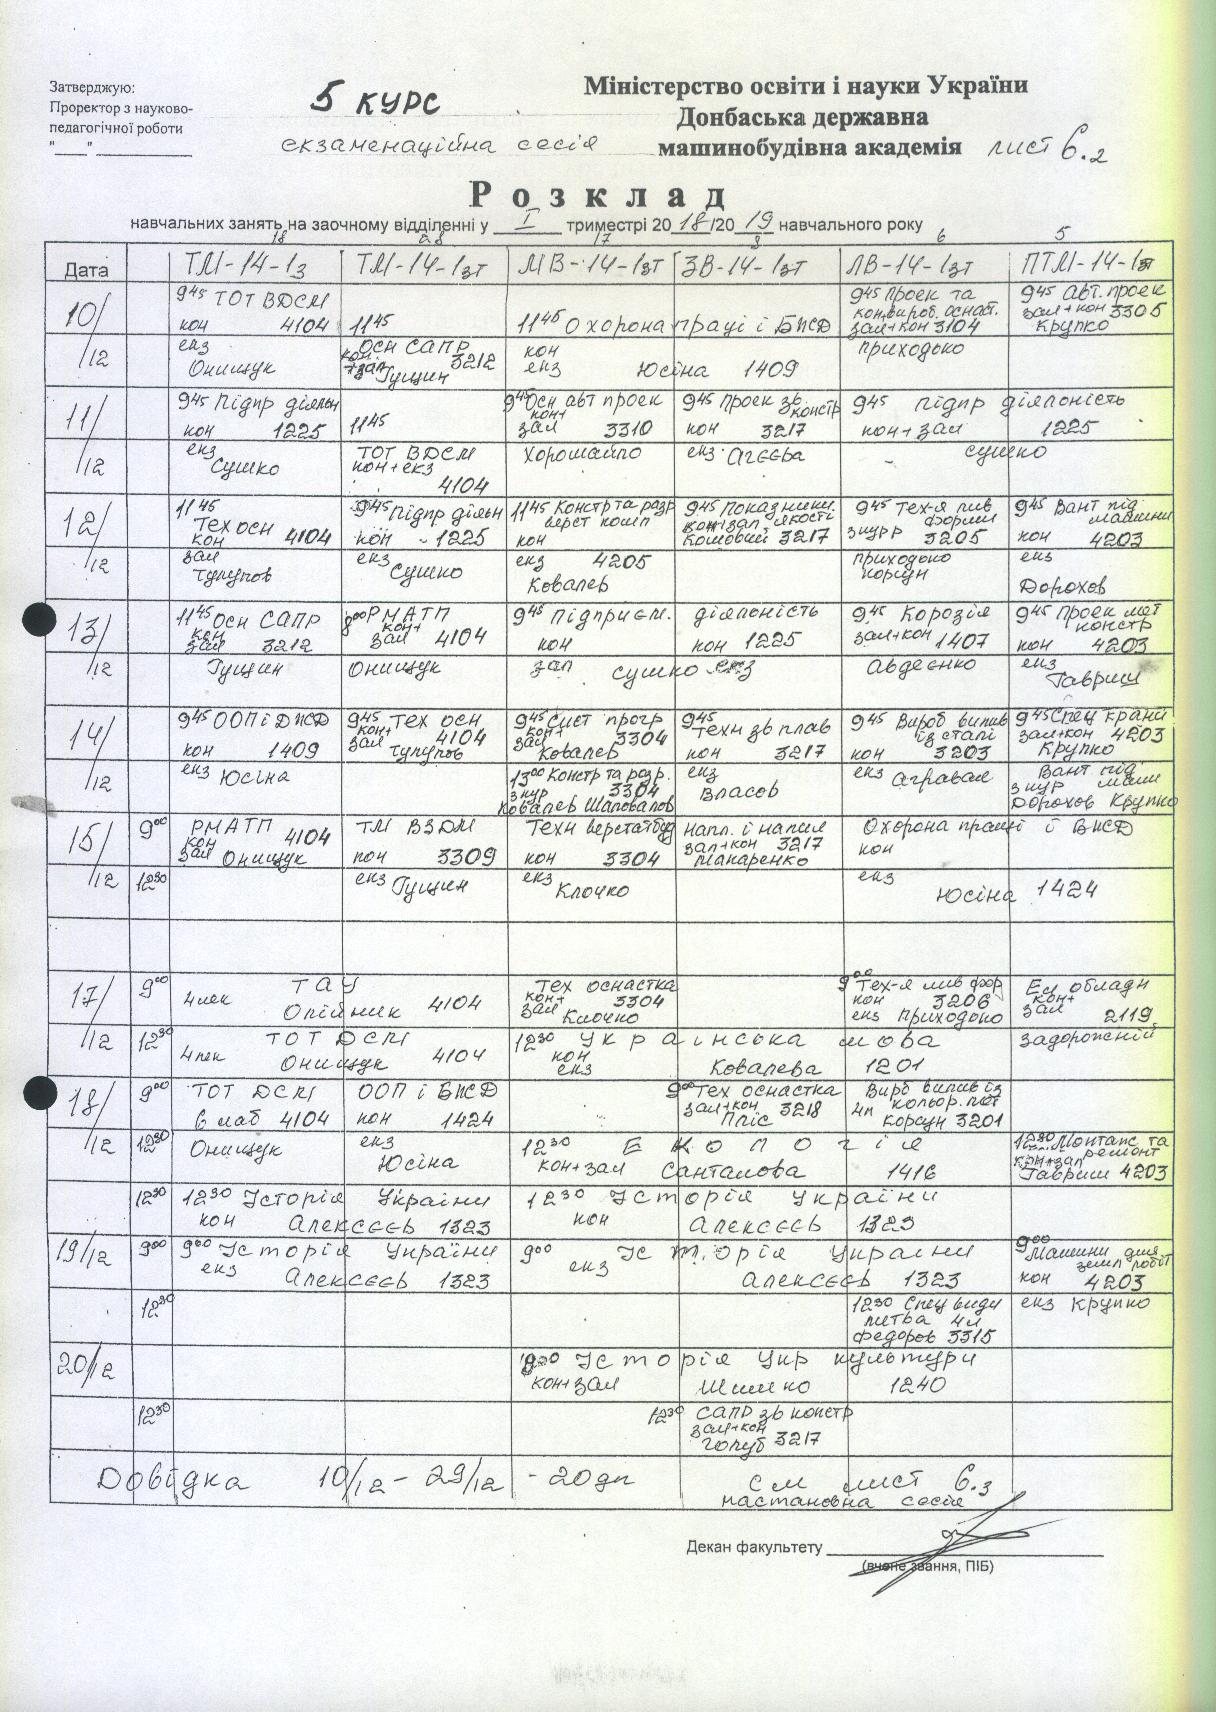 Затверджую:
Проректор з науково-
педагогічної роботи
"____" ____________
5 курс
екзаменаційна сесія
Міністерство освіти і науки України
Донбаська державна
машинобудівна академія
лист 6.2
Розклад
навчальних занять на заочному відділенні у I триместрі 2018/2019 навчального року
18 28 17 8 6 5
Дата ТМ-14-1з ТМ-14-1зт МВ-14-1зт ЗВ-14-1зт ЛВ-14-1зт ПТМ-14-1зт
10/12
9⁴⁵ ТОТ ВДСМ
кон 4104
екз
Онищук
11⁴⁵
Осн САПР
кон+зал 3212
Гущин
11⁴⁵ Охорона праці і БЖД
кон
екз Юсіна 1409
9⁴⁵ Проек та
кон.вироб. оснаст.
зал+кон 3104
Приходько
9⁴⁵ Авт. проек
зал+кон 3305
Крупко
11/12
9⁴⁵ Підпр діяльн
кон 1225
екз
Сушко
11⁴⁵
ТОТ ВДСМ
кон+екз
4104
9⁴⁵ Осн авт проек
кон+
зал 3310
Хорошайло
9⁴⁵ Проек зв
констр
кон 3217
екз Агєєва
9⁴⁵ Підпр діяльність
кон+зал 1225
Сушко
12/12
11⁴⁵
Тех осн
кон 4104
зал
Тулупов
9⁴⁵ Підпр діяльн
кон 1225
екз Сушко
11⁴⁵ Констр та разр
верст компл
кон
екз 4205
Ковалев
9⁴⁵ Показники
кон+зал якості
Кошовий 3217
9⁴⁵ Тех-я лив
форми
з курр 3205
Приходько
Корсун
9⁴⁵ Вант під
машини
кон 4203
екз
Дорохов
13/12
11⁴⁵ Осн САПР
кон
зал 3212
Гущин
9⁰⁰ РМАТП
кон+
зал 4104
Онищук
9⁴⁵ Підприєм. діяльність
кон кон 1225
зал Сушко екз
9⁴⁵ Корозія
зал+кон 1407
Авдеєнко
9⁴⁵ Проек мет
констр
кон 4203
екз
Гавриш
14/12
9⁴⁵ ООП і БЖД
кон 1409
екз Юсіна
9⁴⁵ Тех осн
кон+ 4104
зал Тулупов
9⁴⁵ Сист прогр
кон+ 3304
зал Ковалев
13⁰⁰ Констр та розр.
з кур 3304
Ковалев Шаповалов
9⁴⁵
Техн зв плав
кон 3217
екз
Власов
9⁴⁵ Вироб вилив
із сталі
кон 3203
екз Агравал
9⁴⁵ Спец крани
зал+кон 4203
Крупко
Вант під
з кур маши
Дорохов Крупко
15/12
9⁰⁰
РМАТП
кон 4104
зал Онищук
ТМ ВЗДМ
кон 3309
Техн верстатбуд
кон 3304
Напл. і напил
зал+кон 3217
Макаренко
Охорона праці і БЖД
кон
12³⁰
екз Гущин
екз
Клочко
екз
Юсіна 1424
17/12
9⁰⁰
ТАУ
4 лек Олійник 4104
Тех оснастка
кон+ 3304
зал Клочко
9⁰⁰ Тех-я лив фор
кон 3206
екз Приходько
Ел обладн
кон+
зал 2119
Задорожній
12³⁰
ТОТ ДСМ
4 лек Онищук 4104
12³⁰ Українська мова
кон
екз Ковалева 1201
18/12
9⁰⁰
ТОТ ДСМ
6 лаб 4104
Онищук
ООП і БЖД
кон 1424
екз
Юсіна
9⁰⁰ Тех оснастка
зал+кон 3218
Пліс
Вирб вилив із
4л кольор. мет
Корсун 3201
12³⁰
12³⁰ Екологія
кон+зал Санталова 1416
12³⁰ Монтаж та
ремонт
кон+зал
Гавриш 4203
12³⁰
12³⁰ Історія України
кон Алексєєв 1323
12³⁰ Історія України
кон Алексєєв 1323
19/12
9⁰⁰
9⁰⁰ Історія України
екз Алексєєв 1323
9⁰⁰ Історія України
екз Алексєєв 1323
9⁰⁰
Машини для
земл робіт
кон 4203
екз Крупко
12³⁰
12³⁰ Спец види
литва 4л
Федоров 3315
20/12
9⁰⁰ Історія Укр культури
кон+зал Шимко 1240
12³⁰
12³⁰ САПР зв констр
зал+кон
Голуб 3217
Довідка 10/12 - 29/12 - 20дн
см лист 6.3
настановна сесія
Декан факультету
(вчене звання, ПІБ)